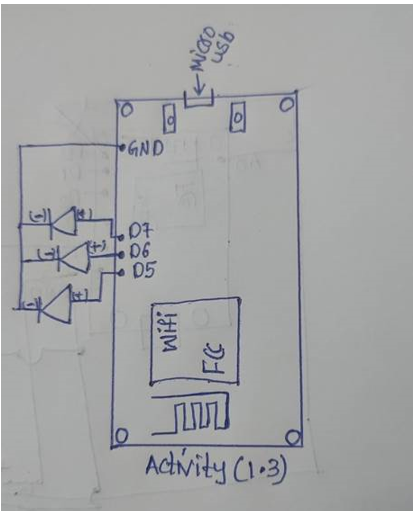 Micro
usb
GND
D7
(-) (+)
D6
(-) (+)
D5
(-) (+)
Wifi
FCC
Activity (1.3)